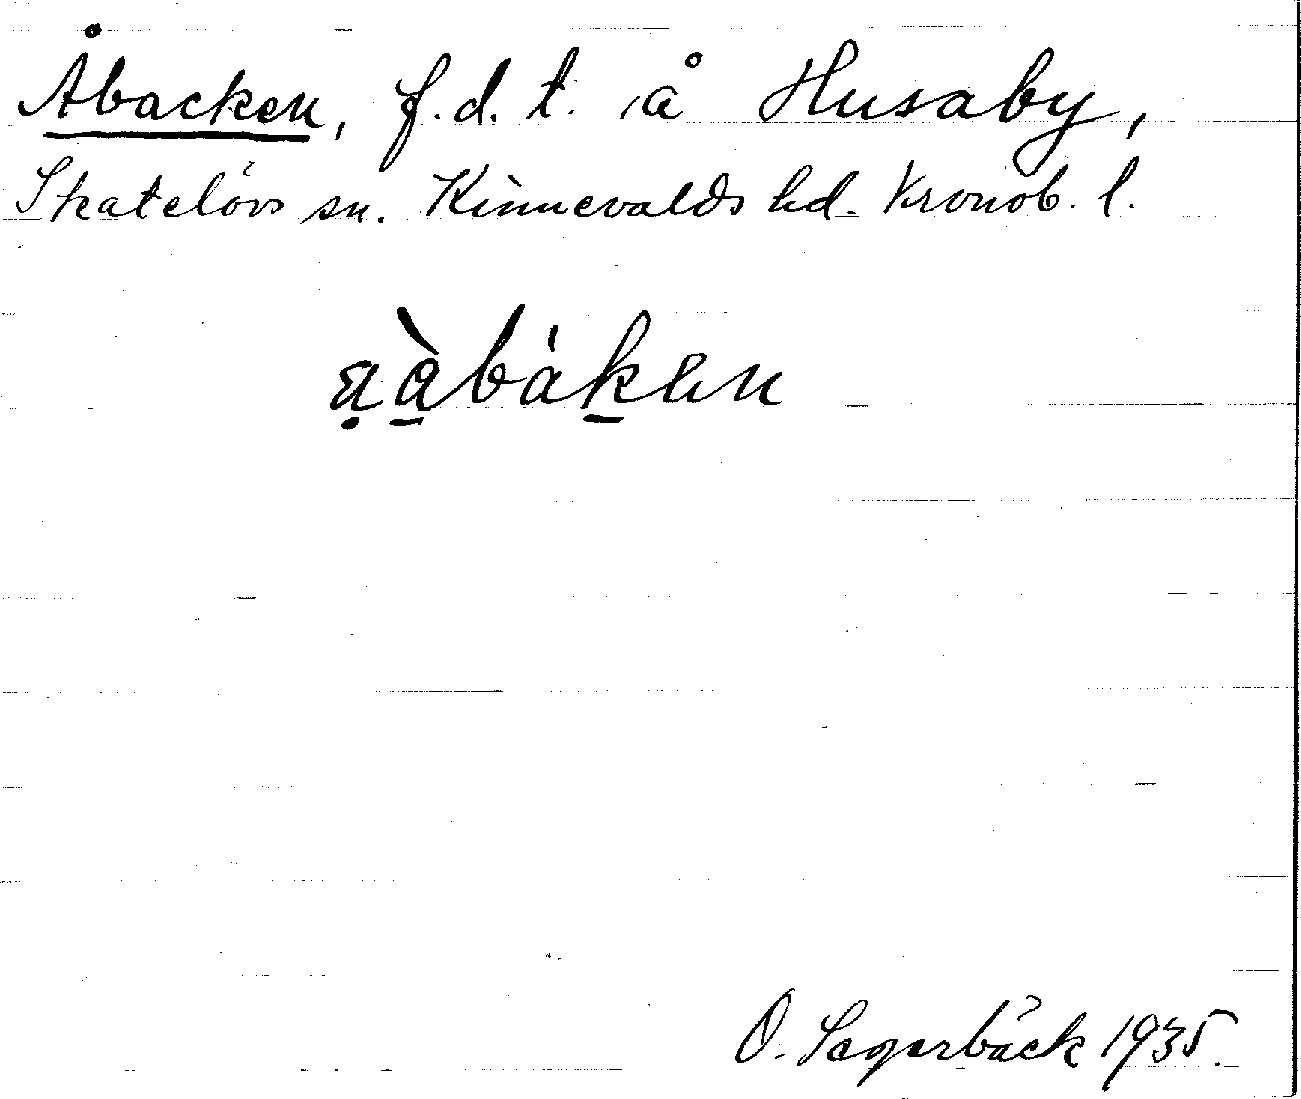 Åbacken, f.d. t. å Husaby,
Skatelövs sn. Kinnevalds hd. Kronob. l.
a̤à̱bák̠en
O. Lagerbäck 1935.